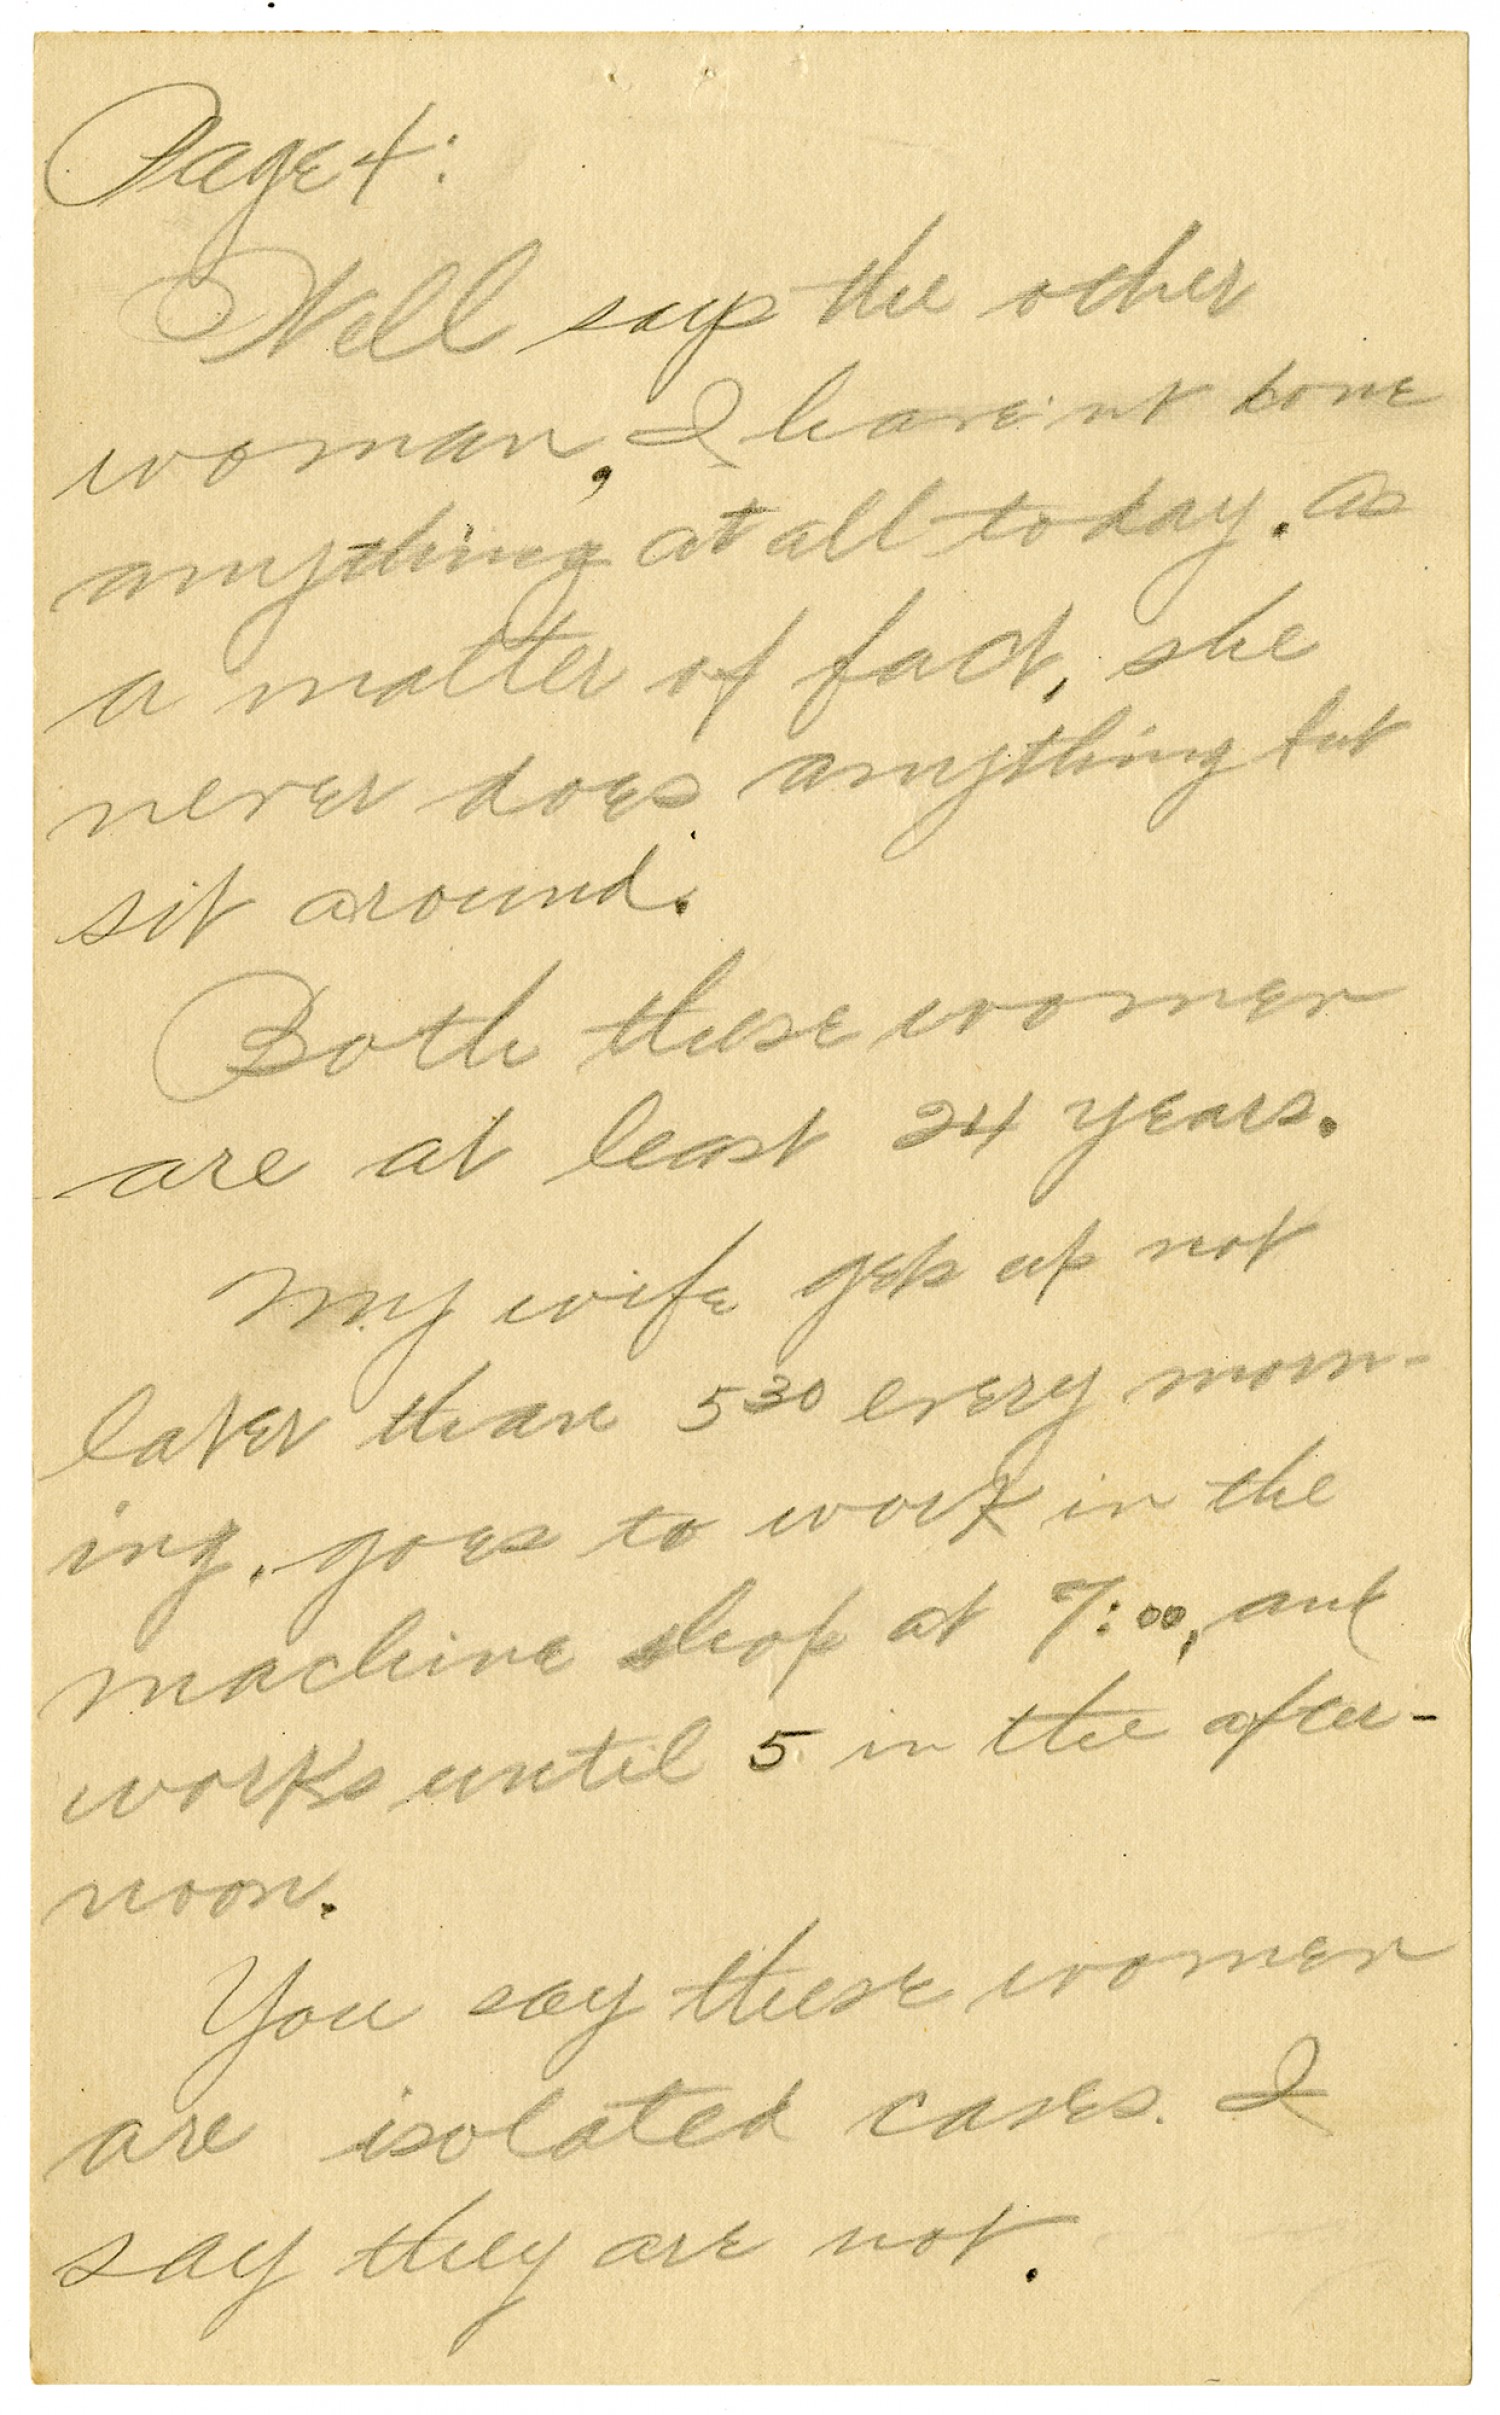 Page 4:
Well says the other
woman, I have'nt done
anything at all today. As
a matter of fact, she
never does anything but
sit around.
Both these women
are at least 24 years.
My wife gets up not
later than 5 30 every morn-
ing. goes to work in the
machine shop at 7:00, and
works until 5 in the after-
noon.
You say these women
are isolated cases. I
say they are not.